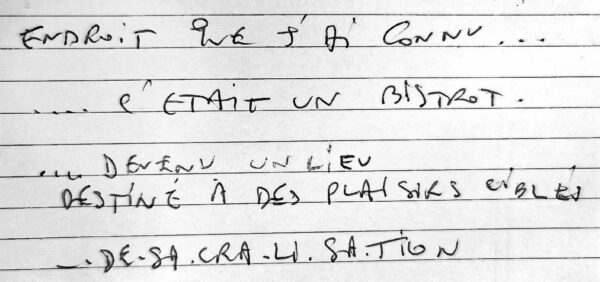 ENDROIT QUE J'AI CONNU...
.... C'ETAIT UN BISTROT.
... DEVENU UN LIEU
DESTINÉ À DES PLAISIRS CIBLÉS
_..DE.SA.CRA.LI.SA.TION